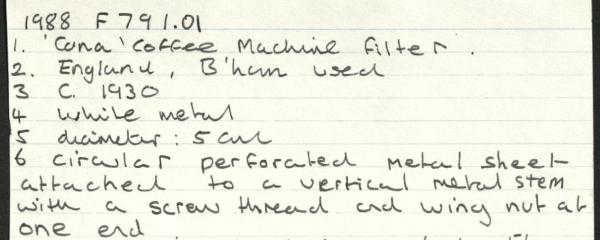 1988 F 791.01
1. 'Cona' Coffee Machine filter.
2. England, B'ham used
3 C. 1930
4 white metal
5 diameter: 5 cm
6 circular perforated metal sheet
attached to a vertical metal stem
with a screw thread and wing nut at
one end